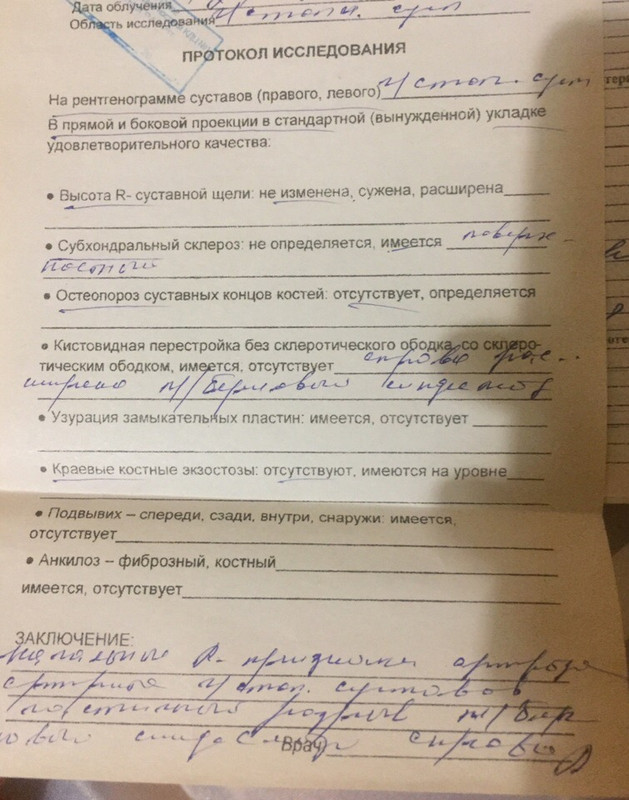 Дата облучения
Область исследования г/стопн. суст
ПРОТОКОЛ ИССЛЕДОВАНИЯ
На рентгенограмме суставов (правого, левого) г/стоп. суст
В прямой и боковой проекции в стандартной (вынужденной) укладке
удовлетворительного качества:
• Высота R- суставной щели: не изменена, сужена, расширена
• Субхондральный склероз: не определяется, имеется поверх-
ностный
• Остеопороз суставных концов костей: отсутствует, определяется
• Кистовидная перестройка без склеротического ободка, со склеро-
тическим ободком, имеется, отсутствует справа рас-
ширено м/берцовый синдесмоз
• Узурация замыкательных пластин: имеется, отсутствует
• Краевые костные экзостозы: отсутствуют, имеются на уровне
• Подвывих – спереди, сзади, внутри, снаружи: имеется,
отсутствует
• Анкилоз – фиброзный, костный
имеется, отсутствует
ЗАКЛЮЧЕНИЕ:
начальные R- признаки артроза
артрита г/стоп. суставов
частичный разрыв м/бер
цового синдесмоза справа
Врач